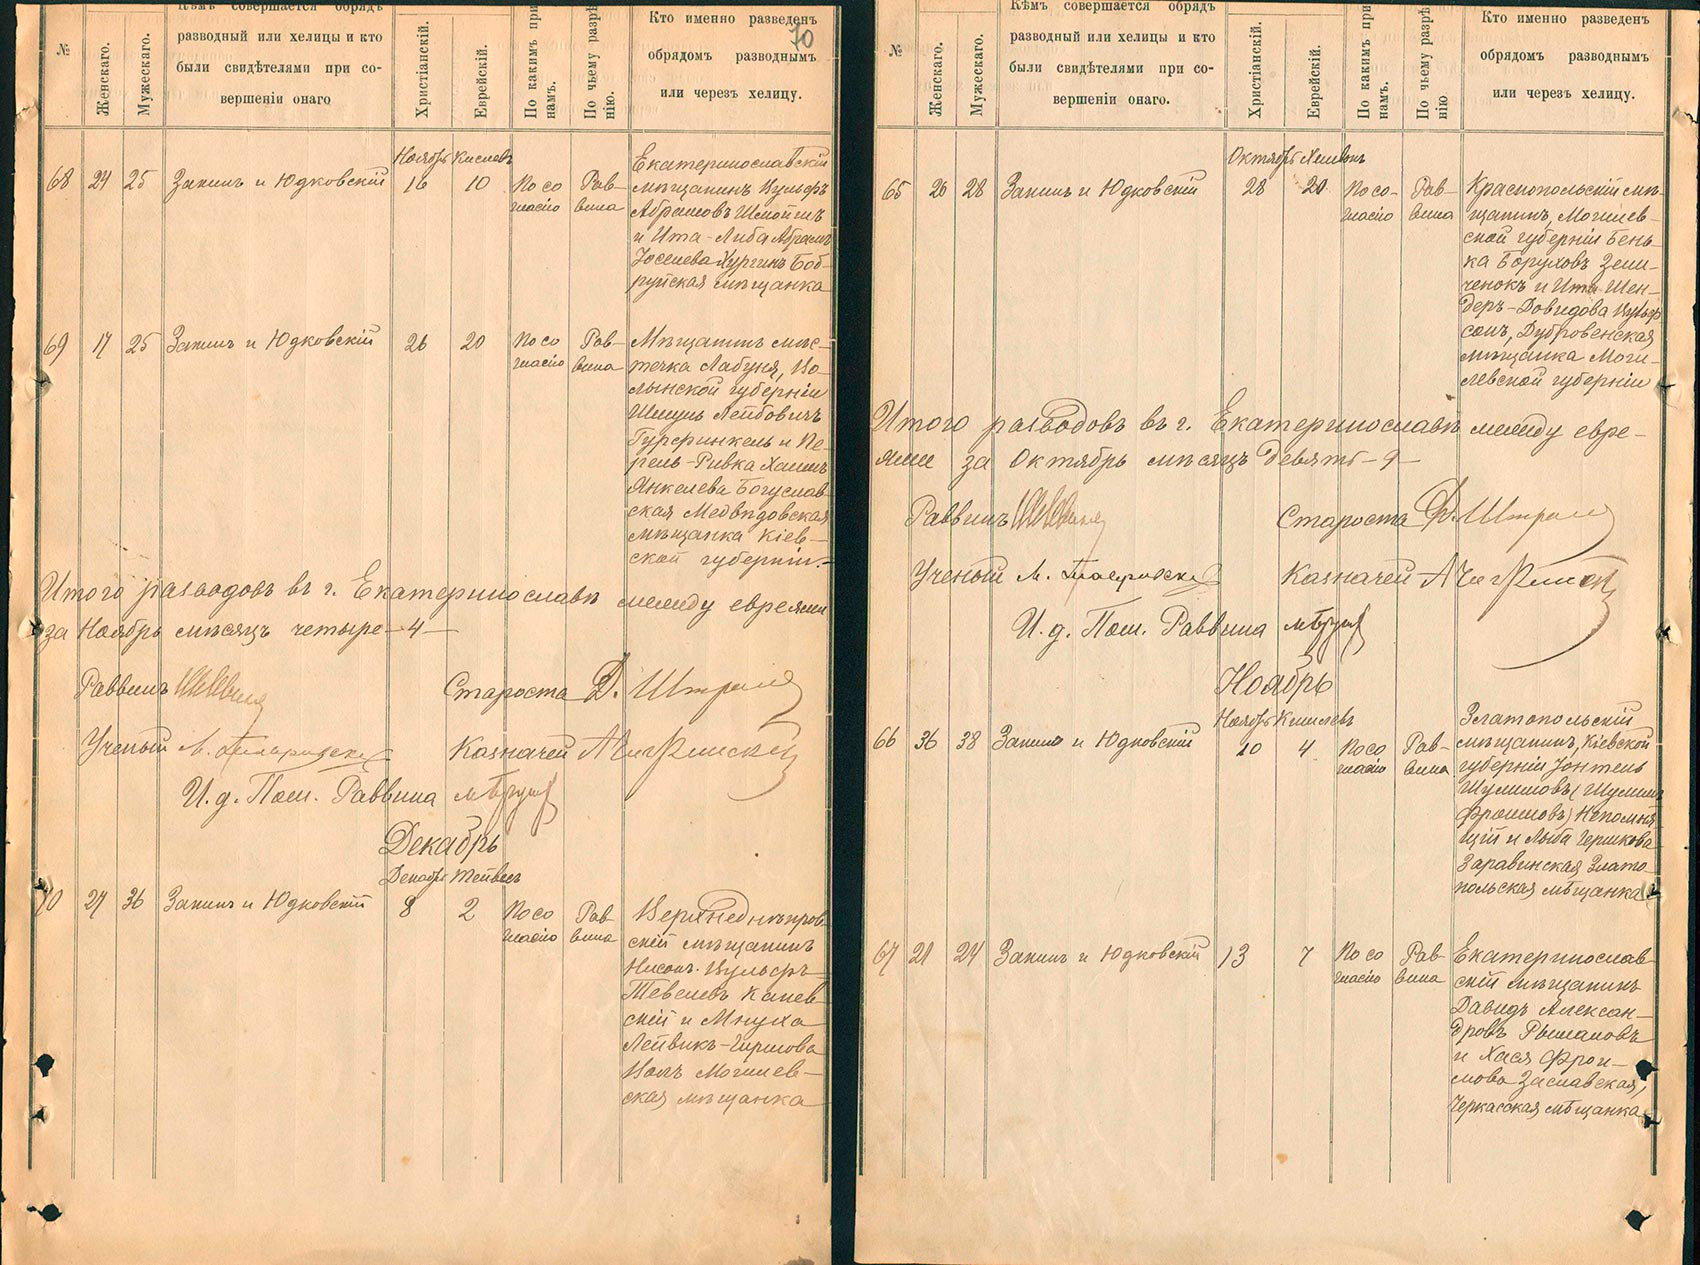 70
№
Женскаго.
Мужескаго.
Кѣмъ совершается обрядъ
разводный или хелицы и кто
были свидѣтелями при со-
вершеніи онаго
Христіанскій.
Еврейскій.
По какимъ при
намъ.
По чьему разрѣ
нію.
Кто именно разведенъ
обрядомъ разводнымъ
или черезъ хелицу.
Ноябрь Кислевъ
68 24 25 Запинъ и Юдковскій 16 10
По со
гласію
Рав-
вина
Екатеринославскій
мѣщанинъ Вульфъ
Абрамовъ
и Ита-Либа Абрамъ
Іоселева Хургинъ Боб-
руйская мѣщанка
69 17 25 Запинъ и Юдковскій 26 20
По со
гласію
Рав-
вина
Мѣщанинъ мѣс-
течка Лабуня, Во-
лынской губерніи
Шмуль Лейбовичъ
Гурфинкель и Пе-
рель-Ривка Хаимъ
Янкелева Богуслав-
ская Медвѣдовская
мѣщанка Кіев-
ской губерніи.
Итого разводовъ въ г. Екатеринославѣ между евреями
за Ноябрь мѣсяцъ четыре-4-
Раввинъ
Староста Д. Штром
Ученый
Казначей
И. д. Пом. Раввина
Декабрь
Декабрь Тейвесъ
70 27 36 Запинъ и Юдковскій 8 2
По со
гласію
Рав
вина
Верхнеднѣпров-
скій мѣщанинъ
Нисонъ-Вульфъ
Тевелевъ Канев-
скій и Мнуха
Лейвикъ-Гиршова
Могилев-
ская мѣщанка
№
Женскаго.
Мужескаго.
Кѣмъ совершается обрядъ
разводный или хелицы и кто
были свидѣтелями при со-
вершеніи онаго.
Христіанскій.
Еврейскій.
По какимъ при
намъ.
По чьему разрѣ
нію
Кто именно разведенъ
обрядомъ разводнымъ
или черезъ хелицу.
Октябрь Хешвонъ
65 26 28 Запинъ и Юдковскій 28 20
По со-
гласію
Рав-
вина
Краснопольскій мѣ-
щанинъ, Могилев-
ской губерніи Бень-
ка Боруховъ Зели-
ченокъ и Ита Шен-
деръ-Довидова Вульф
сонъ, Дубровенская
мѣщанка Моги-
левской губерніи
Итого разводовъ въ г. Екатеринославѣ между евре-
ями за Октябрь мѣсяцъ девять-9-
Раввинъ
Староста Д. Штром
Ученый
Казначей
И. д. Пом. Раввина
Ноябрь
Ноябрь Кислевъ
66 36 38 Запинъ и Юдковскій 10 4
По со
гласію
Рав-
вина
Златопольскій
мѣщанинъ, Кіевской
губерніи Іонтель
Шулимовъ (Шулимъ
Фроимовъ) Непомня
щій и Лыба Гершкова
Заравинская Злато
польская мѣщанка
67 21 24 Запинъ и Юдковскій 13 7
По со
гласію
Рав
вина
Екатеринослав
скій мѣщанинъ
Давидъ Алексан-
дровъ Рымановъ
и Хася Фрои-
мова Заславская,
Черкасская мѣщанка